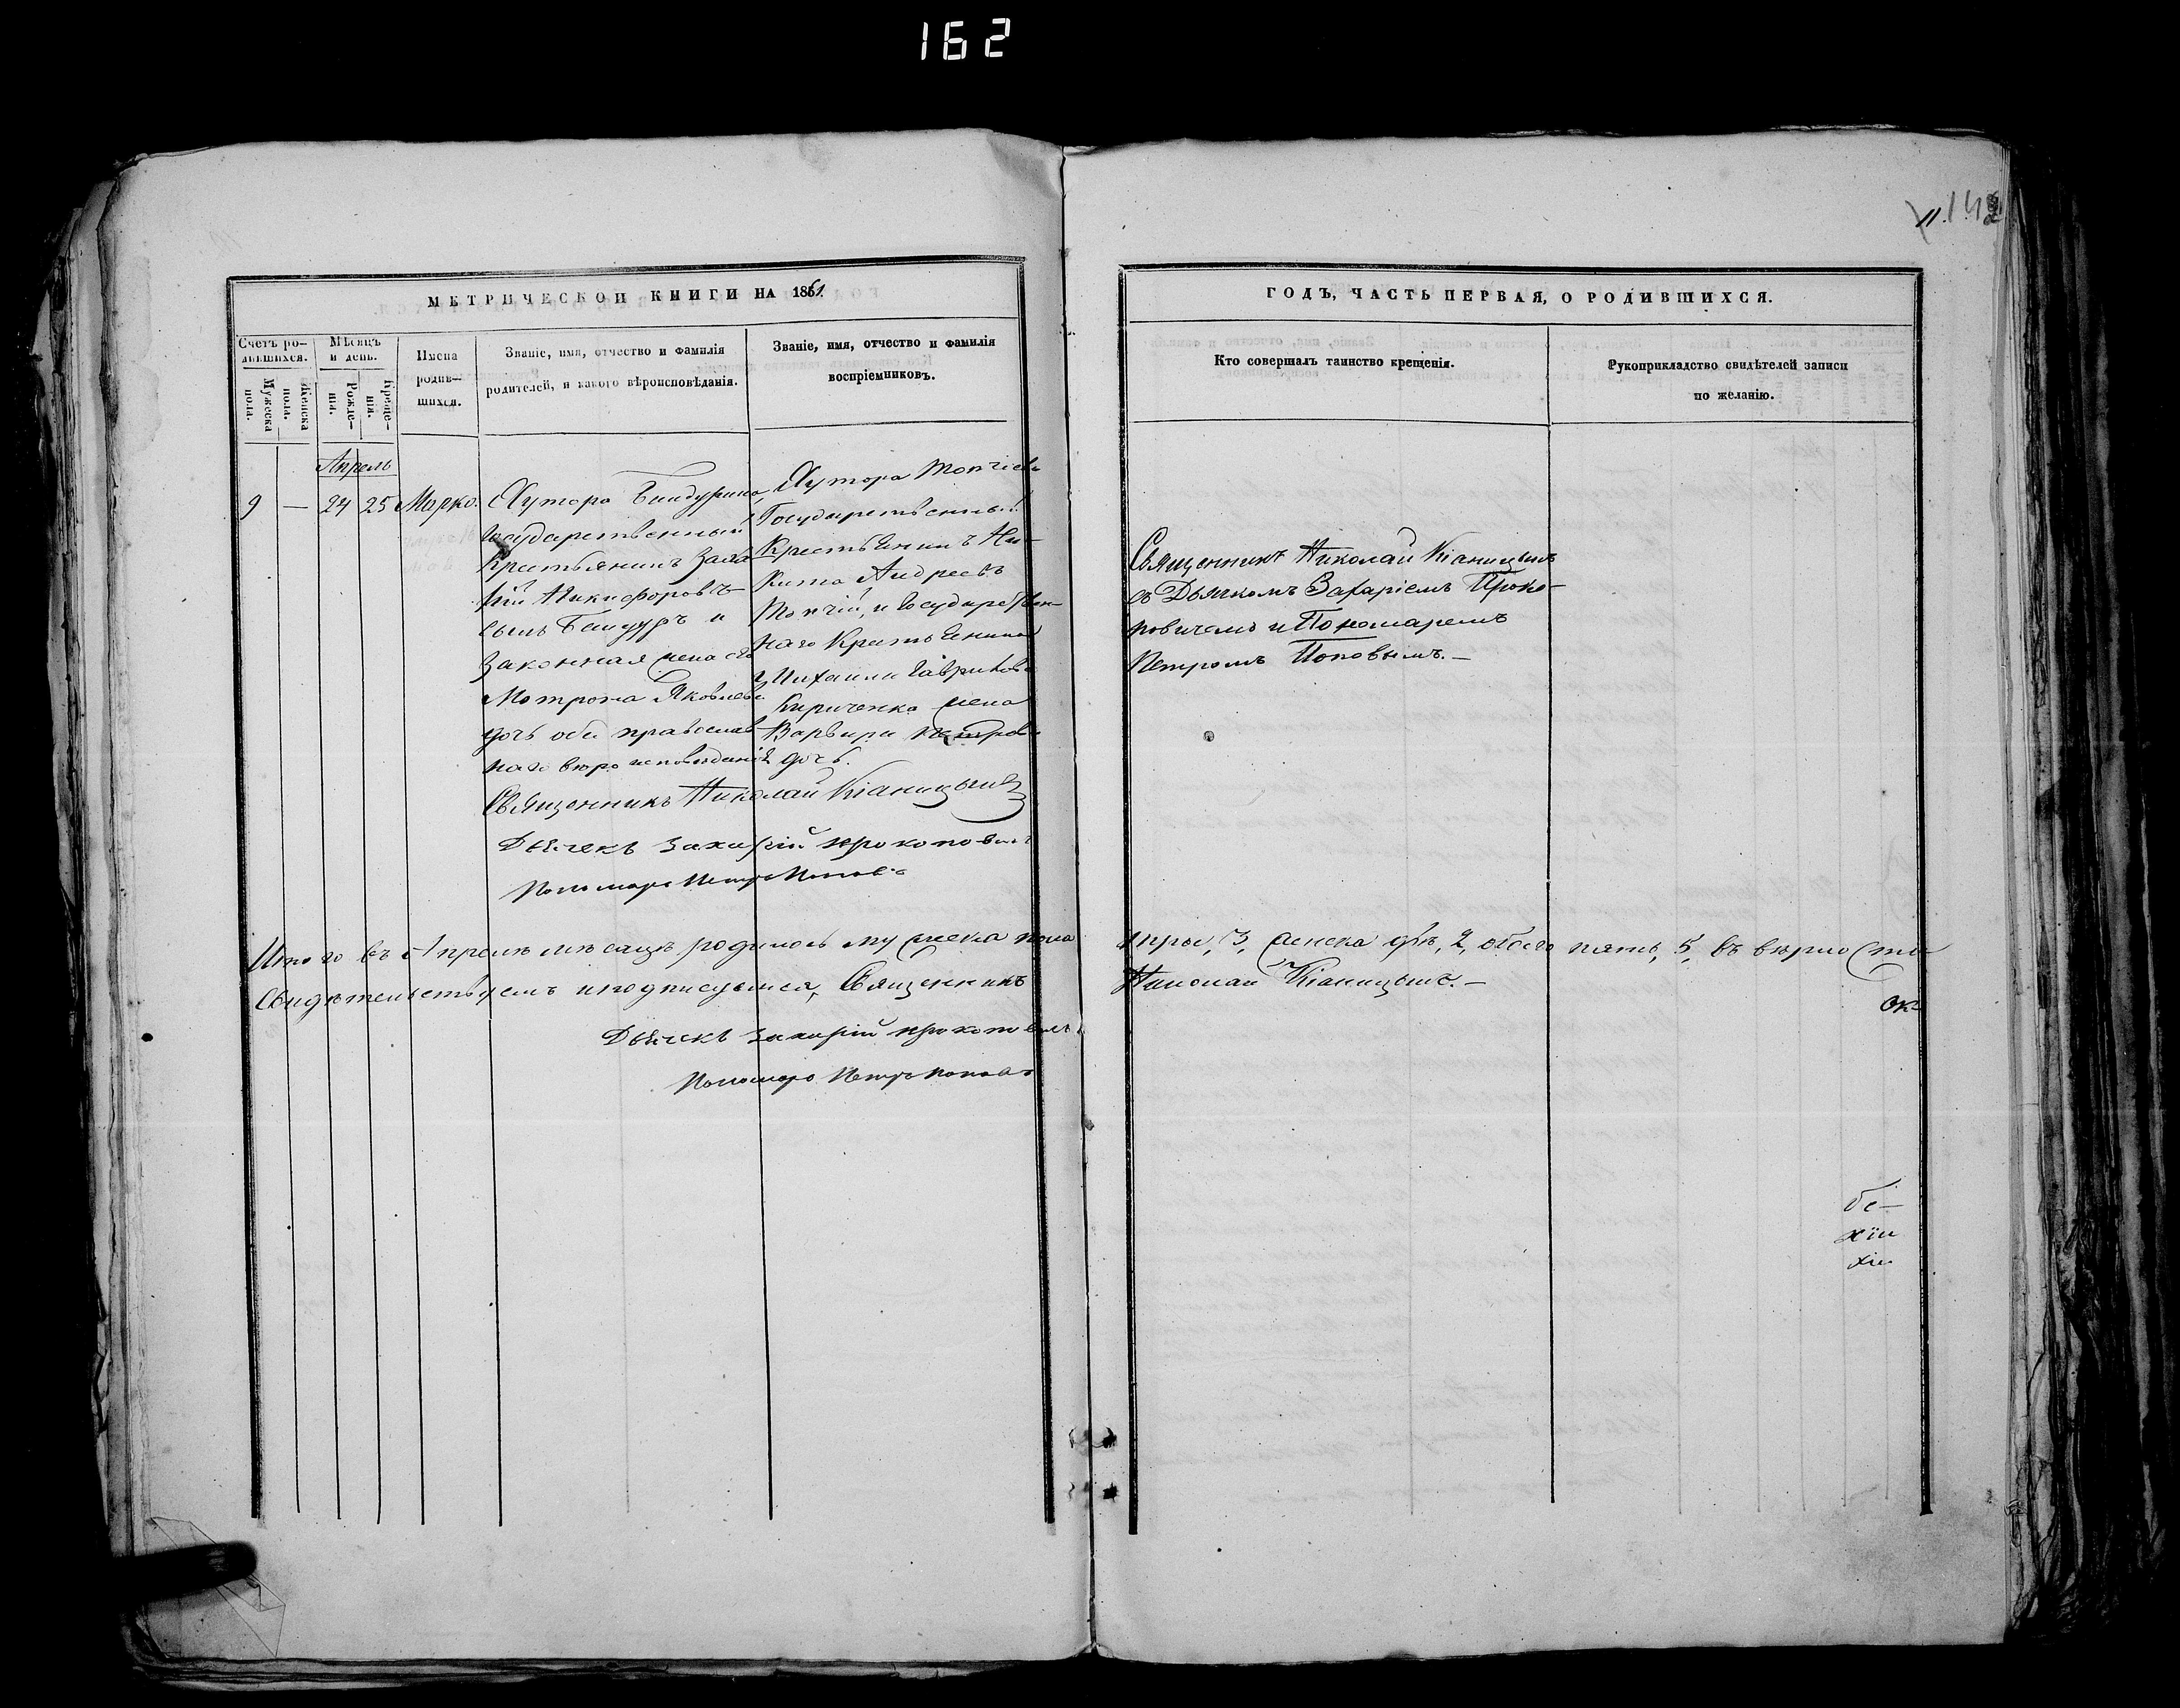 162
11. 142
МЕТРИЧЕСКОЙ КНИГИ НА 1861
ГОДЪ, ЧАСТЬ ПЕРВАЯ, О РОДИВШИХСЯ.
Счетъ ро-
дившихся.
Мужеска
пола.
Женска
пола.
Мѣсяцъ
и день.
Рожде-
нія.
Креще-
нія.
Имена
родив-
шихся.
Званіе, имя, отчество и фамилія
родителей, и какого вѣроисповѣданія.
Званіе, имя, отчество и фамилія
воспріемниковъ.
Кто совершалъ таинство крещенія.
Рукоприкладство свидѣтелей записи
по желанію.
Апрель
9 — 24 25 Марко.
Хутора Бандурина
государственный
Крестьянинъ Заха-
рій Никифоровъ
сынъ Бандуръ и
законная жена его
Мотрона Яковлева
дочь оба православ-
наго вѣро исповѣданія
Хутора Топчіева
Государственный
Крестьянинъ Ни-
кита Андреевъ
Топчій, и Государствен-
наго Крестьянина
Михаила Гаврилова
Кириченка жена
Варвара Петрова
дочь.
Священникъ Николай Кіаницынъ
Дьячекъ Захарій Прокоповичъ
Пономарь Петръ Поповъ
Священникъ Николай Кіаницынъ
съ Дьячкомъ Захаріемъ Проко-
повичемъ и Пономаремъ
Петромъ Поповымъ.—
Итого въ Апрелѣ мѣсяцѣ родилось мужеска пола
три, 3, женска двѣ, 2, обоего пять, 5, въ вѣрности
свидѣтельствуемъ и подписуемся, Священникъ
Николай Кіаницынъ.—
Дьячекъ Захарій Прокоповичъ
Пономарь Петръ Поповъ
ок
бе-
хіи
хіи